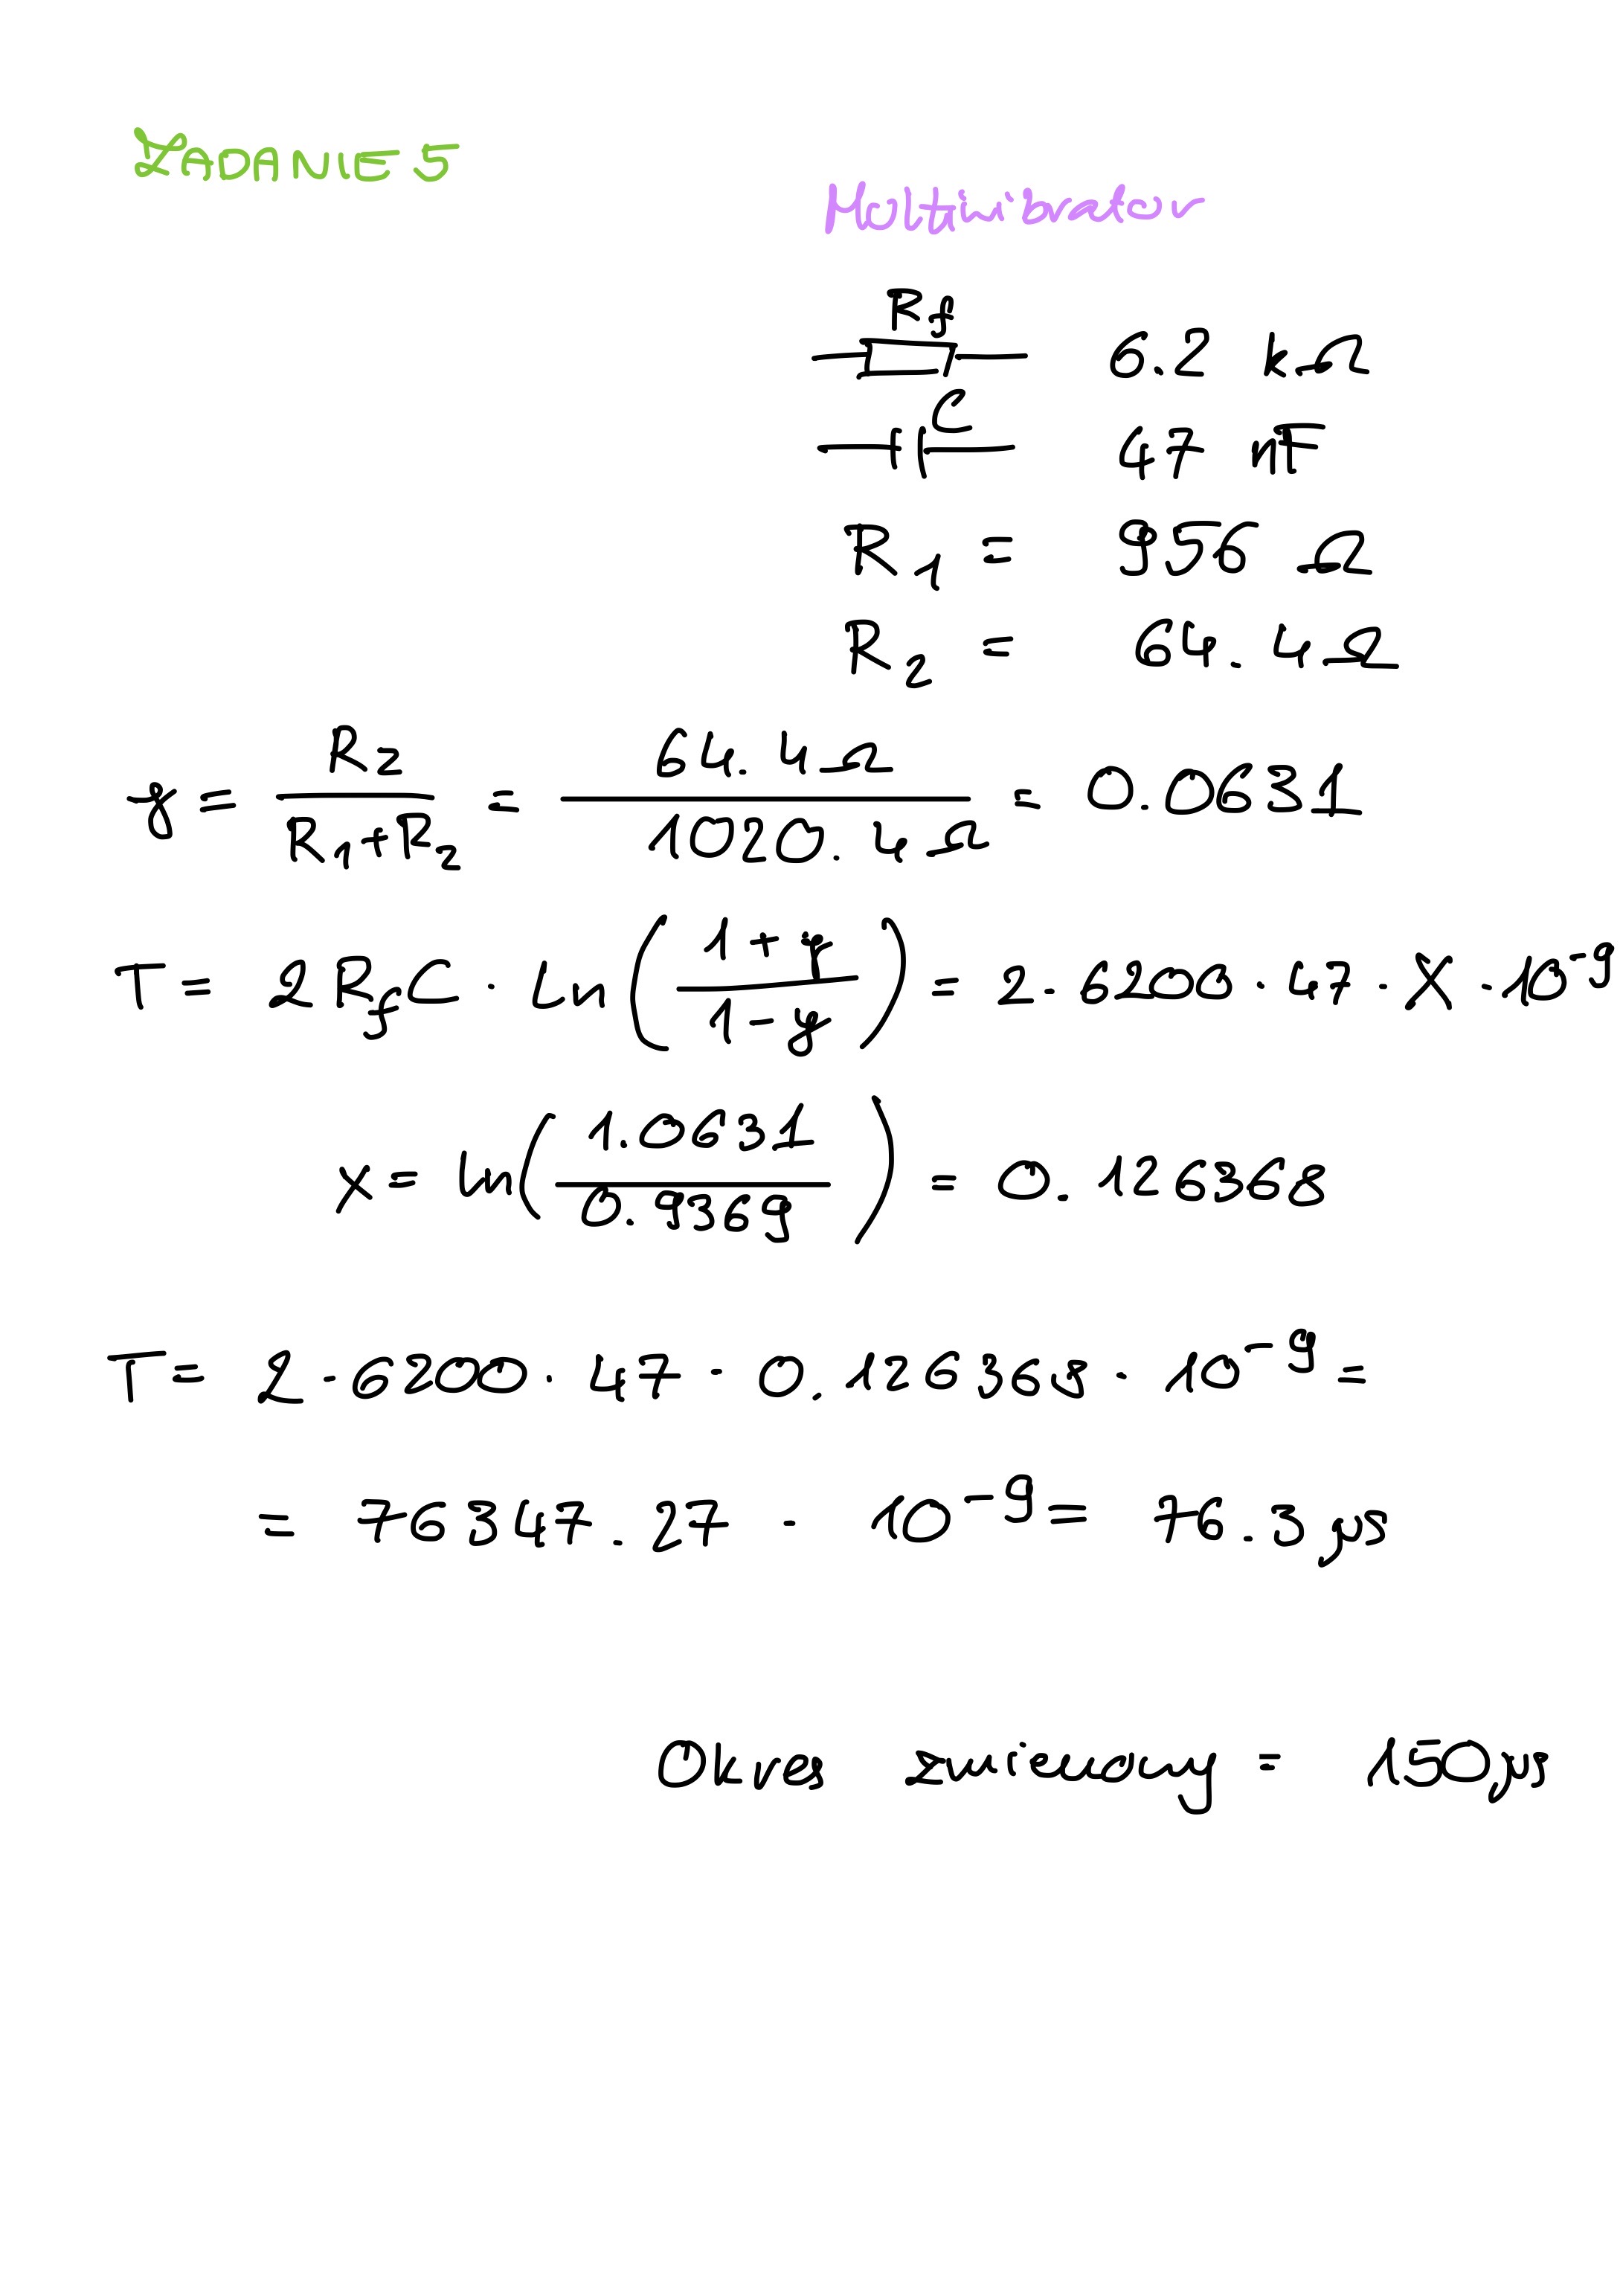 ZADANIE 5
Multiwibrator
Rf 6.2 kΩ
C 47 nF
R1 = 956 Ω
R2 = 64.4Ω
γ = R2 / (R1+R2) = 64.4Ω / 1020.4Ω = 0.0631
T = 2RfC · ln((1+γ)/(1-γ)) = 2·6200·47·X·10^-9
x = ln(1.0631/0.9369) = 0.126368
T = 2·6200·47·0.126368·10^-9 =
= 76347.27 · 10^-9 = 76.3μs
Okres zmierzony = 150μs